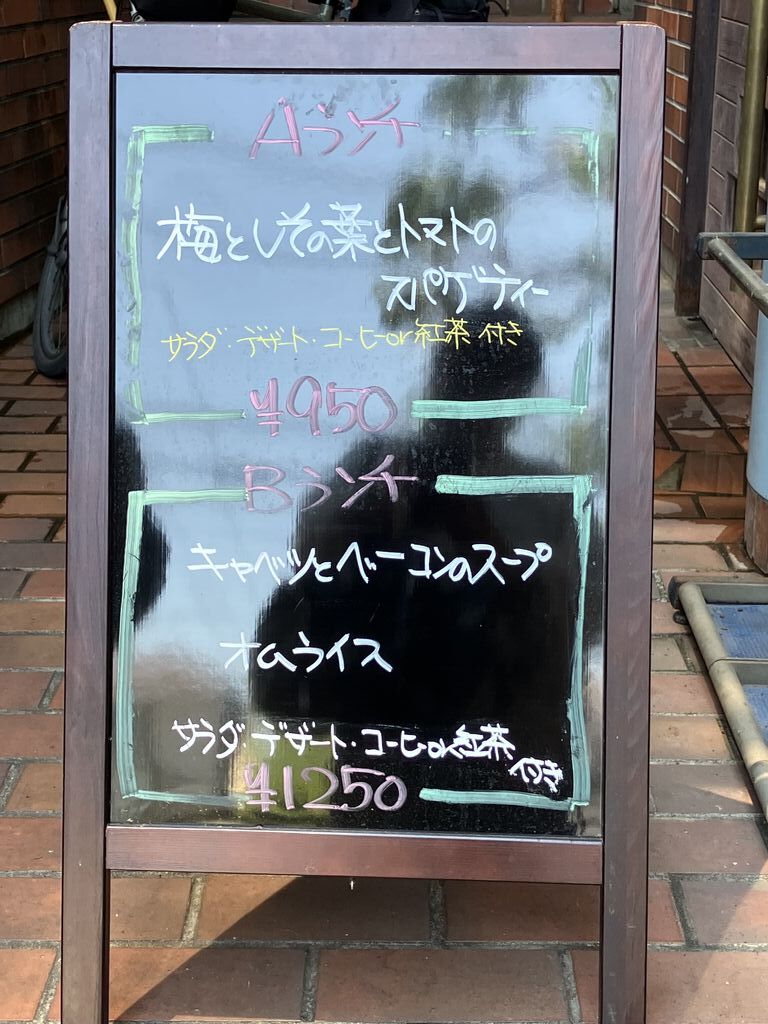 Aランチ
梅としその葉とトマトの
スパゲティー
サラダ・デザート・コーヒーor紅茶 付き
¥950
Bランチ
キャベツとベーコンのスープ
オムライス
サラダ・デザート・コーヒーor紅茶
付き
¥1250